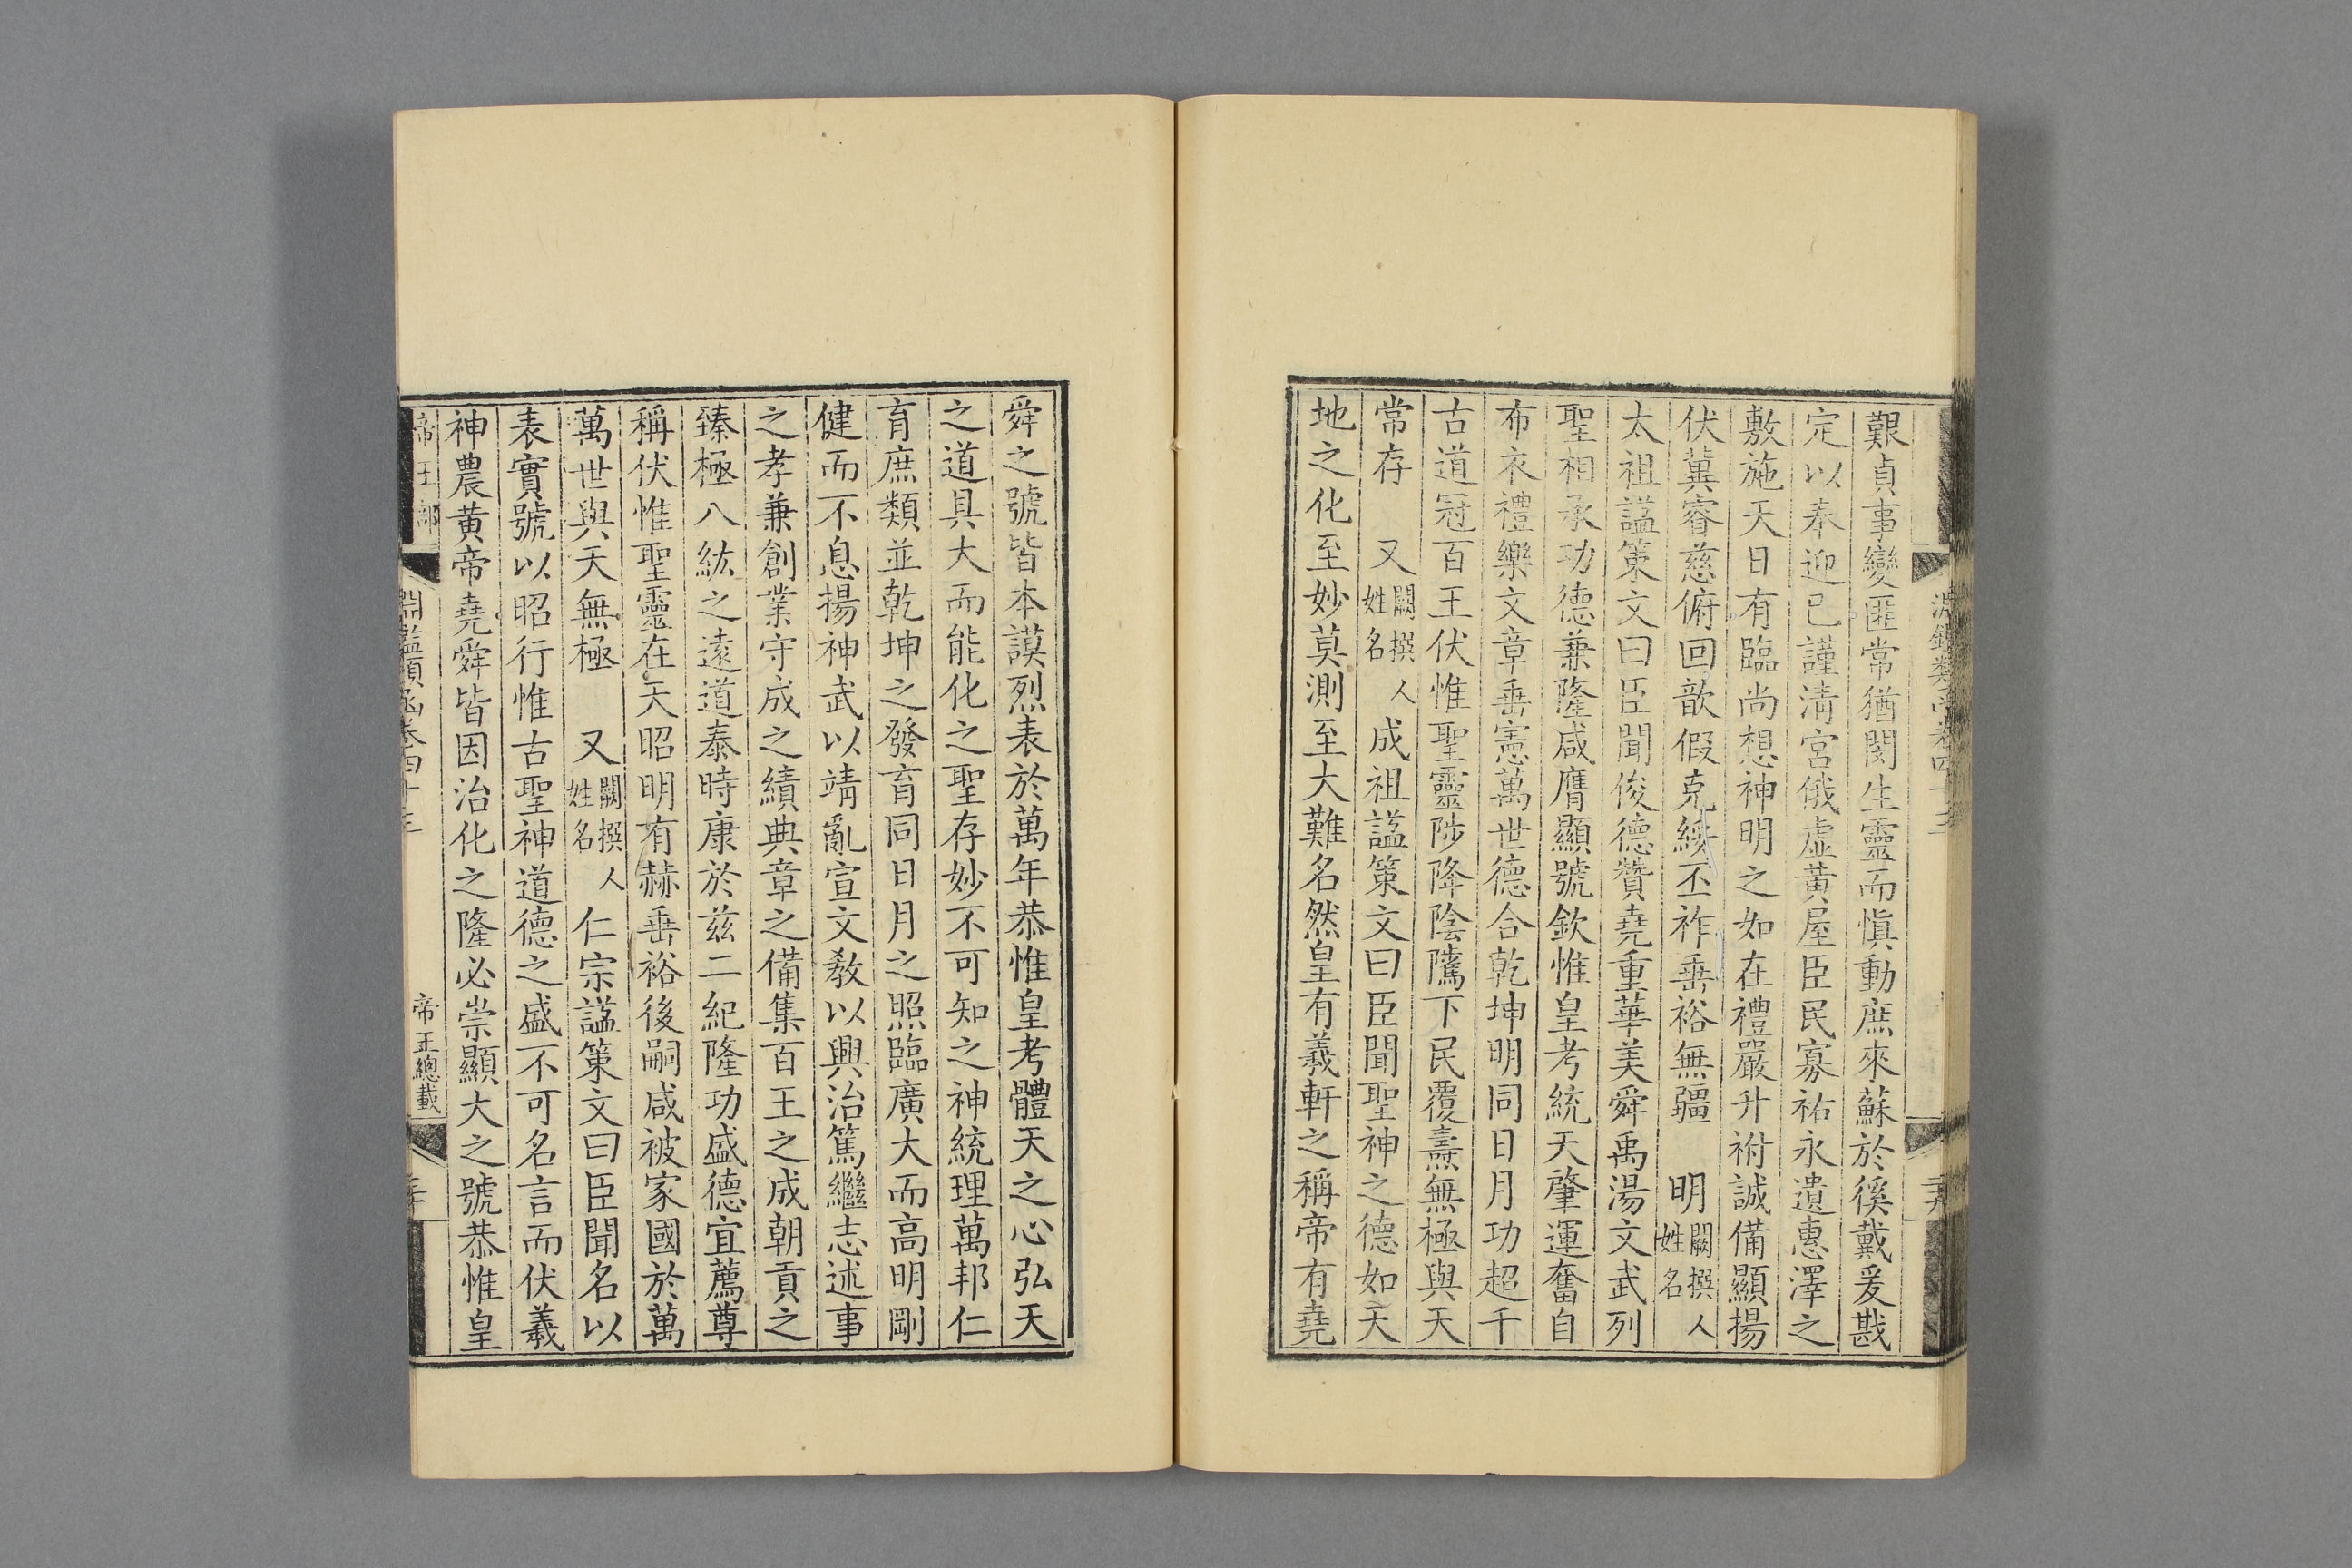 艱貞事變匪常猶閔生靈而愼動庶來蘇於徯戴爰戡
定以奉迎已謹淸宮俄虛黃屋臣民寡祐永遺惠澤之
敷施天日有臨尚想神明之如在禮嚴升祔誠備顯揚
伏冀睿慈俯回歆假克綏丕祚垂裕無疆　明闕撰人姓名
太祖諡策文曰臣聞俊德贊堯重華美舜禹湯文武列
聖相承功德兼隆咸膺顯號欽惟皇考統天肇運奮自
布衣禮樂文章垂憲萬世德合乾坤明同日月功超千
古道冠百王伏惟聖靈陟降陰隲下民覆燾無極與天
常存　又闕撰人姓名　成祖諡策文曰臣聞聖神之德如天
地之化至妙莫測至大難名然皇有羲軒之稱帝有堯
舜之號皆本謨烈表於萬年恭惟皇考體天之心弘天
之道具大而能化之聖存妙不可知之神統理萬邦仁
育庶類並乾坤之發育同日月之照臨廣大而高明剛
健而不息揚神武以靖亂宣文敎以興治篤繼志述事
之孝兼創業守成之績典章之備集百王之成朝貢之
臻極八紘之遠道泰時康於玆二紀隆功盛德宜薦尊
稱伏惟聖靈在天昭明有赫垂裕後嗣咸被家國於萬
萬世與天無極　又闕撰人姓名　仁宗諡策文曰臣聞名以
表實號以昭行惟古聖神道德之盛不可名言而伏羲
神農黄帝堯舜皆因治化之隆必崇顯大之號恭惟皇
帝王部
淵鑑類函卷四十三
帝王總載